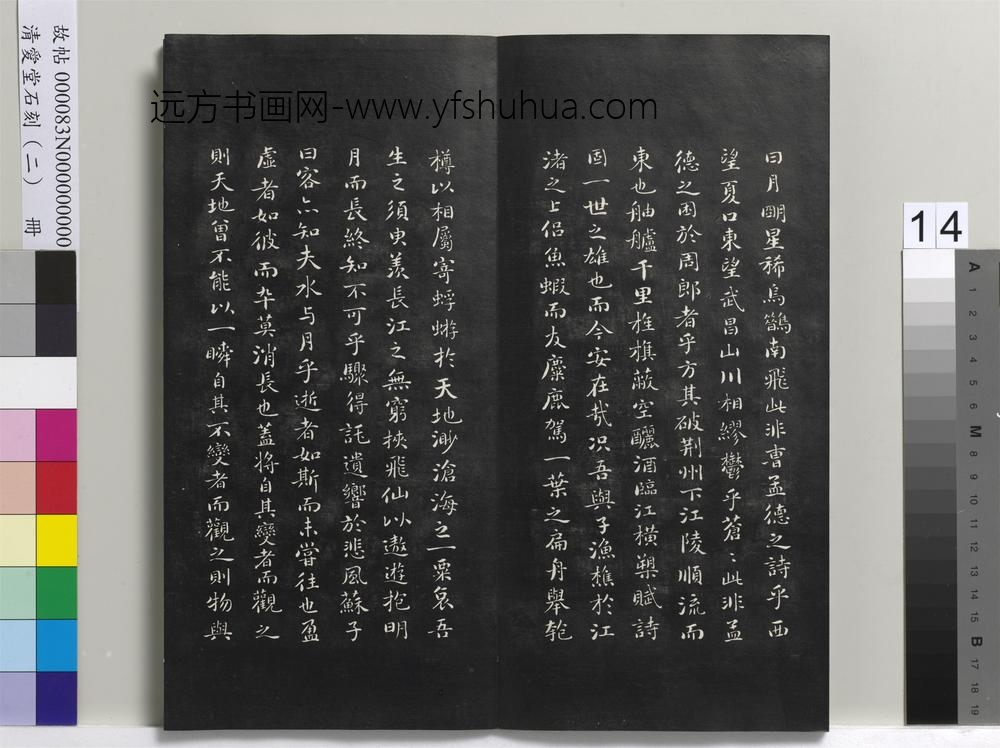 日月朙星稀烏鵲南飛此非曹孟德之詩乎西
望夏口東望武昌山川相繆鬱乎蒼〻此非孟
德之困於周郎者乎方其破荆州下江陵順流而
東也舳艫千里旌旗蔽空釃酒臨江橫槊賦詩
固一世之雄也而今安在哉况吾與子漁樵於江
渚之上侣魚蝦而友麋鹿駕一葉之扁舟舉匏
樽以相屬寄蜉蝣於天地渺滄海之一粟哀吾
生之須臾羨長江之無窮挾飛仙以遨遊抱明
月而長終知不可乎驟得託遺響於悲風蘇子
曰客亦知夫水与月乎逝者如斯而未嘗往也盈
虛者如彼而卒莫消長也蓋將自其變者而觀之
則天地曾不能以一瞬自其不變者而觀之則物與
远方书画网-www.yfshuhua.com
故帖 000083N000000000
清愛堂石刻（二） 冊
14
A 1 2 3 4 5 6 M 8 9 10 11 12 13 14 15 B 17 18 19